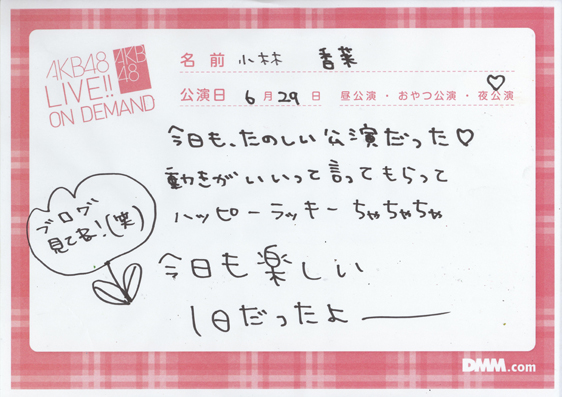 AKB48
LIVE!!
ON DEMAND
AKB
48
名前 小林 香菜
公演日 6月29日 昼公演・おやつ公演・夜公演
今日も、たのしい公演だった♡
動きがいいって言ってもらって
ハッピーラッキーちゃちゃちゃ
ブログ
見てね!(笑)
今日も楽しい
1日だったよ——
DMM.com